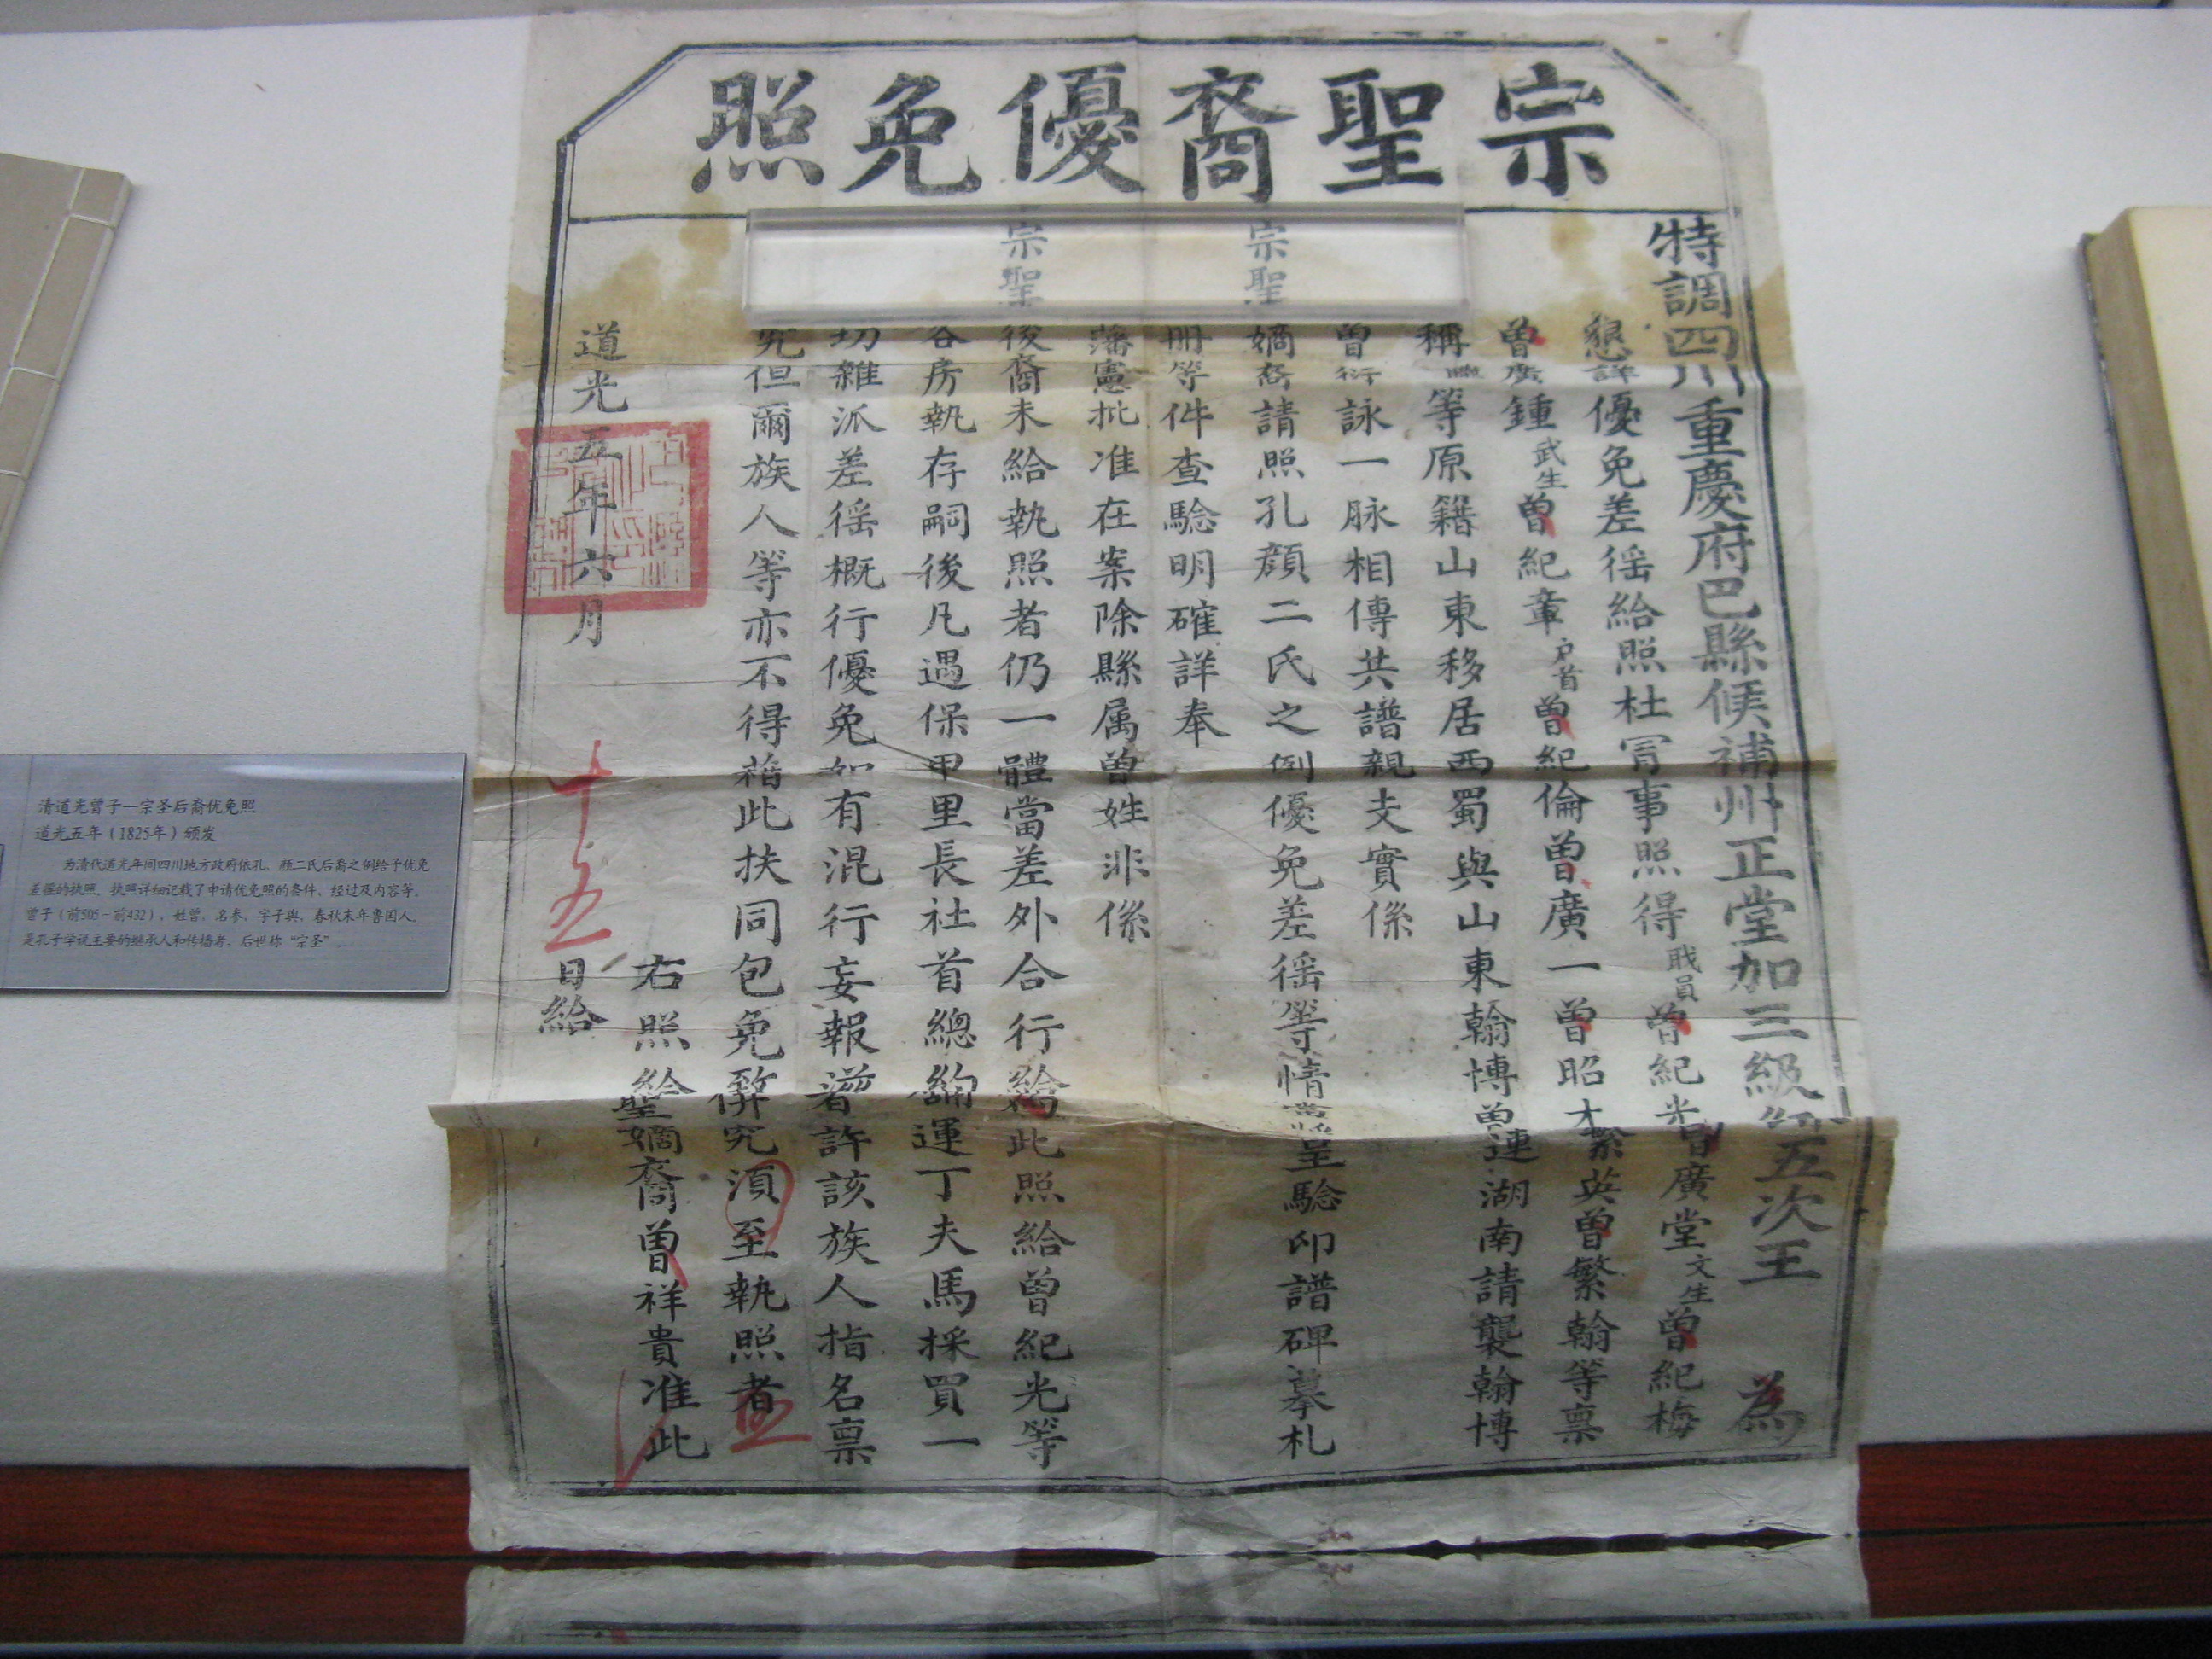 宗聖裔優免照
特調四川重慶府巴縣候補州正堂加三級紀五次王 為
懇詳優免差徭給照杜冐事照得職員曾紀光曾廣堂文生曾紀梅
曾廣鍾武生曾紀章户首曾紀倫曾廣一曾昭 繁英曾繁翰等禀
稱 等原籍山東移居西蜀與山東翰博曾連湖南請襲翰博
曾衍詠一脉相傳共譜親支實係
宗聖嫡裔請照孔顏二氏之例優免差徭等情 呈驗印譜碑摹札
册等件查驗明確詳奉
藩憲批准在案除縣属曾姓非係
宗聖後裔未給執照者仍一體當差外合行給此照給曾紀光等
各房執存嗣後凡遇保甲里長社首總綳運丁夫馬採買一
切雜派差徭概行優免如有混行妄報滋 許該族人指名禀
究但爾族人等亦不得藉此扶同包免 究須至執照者
右照給聖嫡裔曾祥貴准此
道光五年六月十五日給
清道光曾子—宗圣后裔优免照
道光五年（1825年）颁发
为清代道光年间四川地方政府依孔、颜二氏后裔之例给予优免
差徭的执照。执照详细记载了申请优免照的条件、经过及内容等。
曾子（前505－前432），姓曾，名参，字子舆，春秋末年鲁国人，
是孔子学说主要的继承人和传播者，后世称“宗圣”。